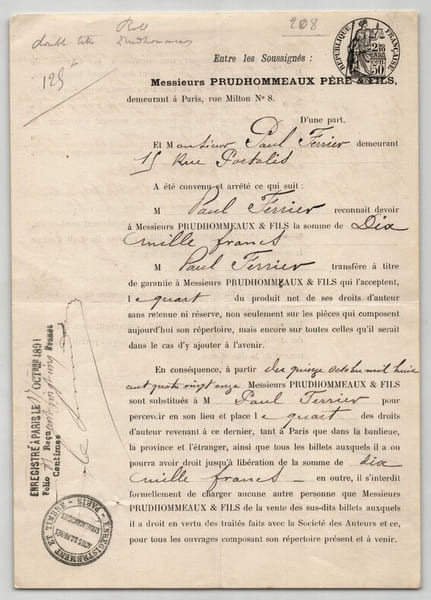 208
double
Prudhommeaux
125
Entre les Soussignés :
RÉPUBLIQUE FRANÇAISE
50
Messieurs PRUDHOMMEAUX PÈRE & FILS,
demeurant à Paris, rue Milton No 8.
D'une part.
Et Monsieur Paul Ferrier demeurant
15 Rue
A été convenu et arrêté ce qui suit :
M Paul Ferrier reconnait devoir
à Messieurs PRUDHOMMEAUX & FILS la somme de Dix
mille francs
M Paul Ferrier transfère à titre
de garantie à Messieurs PRUDHOMMEAUX & FILS qui l'acceptent,
le quart du produit net de ses droits d'auteur
sans retenue ni réserve, non seulement sur les pièces qui composent
aujourd'hui son répertoire, mais encore sur toutes celles qu'il serait
dans le cas d'y ajouter à l'avenir.
En conséquence, à partir du quinze octobre mil huit
cent quatre vingt onze Messieurs PRUDHOMMEAUX & FILS
sont substitués à M Paul Ferrier pour
percevoir en son lieu et place le quart des droits
d'auteur revenant à ce dernier, tant à Paris que dans la banlieue,
la province et l'étranger, ainsi que tous les billets auxquels il a ou
pourra avoir droit jusqu'à libération de la somme de dix
mille francs en outre, il s'interdit
formellement de charger aucune autre personne que Messieurs
PRUDHOMMEAUX & FILS de la vente des sus-dits billets auxquels
il a droit en vertu des traités faits avec la Societé des Auteurs et ce,
pour tous les ouvrages composant son répertoire présent et à venir.
ENREGISTRÉ A PARIS LE OCTOBRE 1891
Folio Reçu
Centimes
ENREGISTREMENT
PARIS